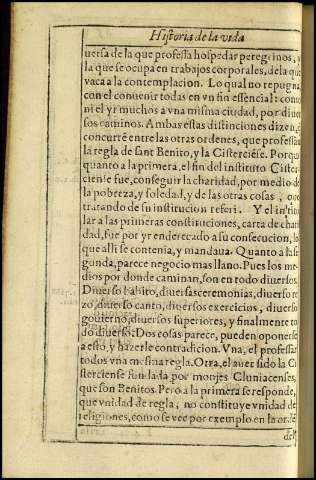 Historia de la vida
uersa de la que professa hospedar peregrinos, y
la que se ocupa en trabajos corporales, de la que
vaca a la contemplacion. Lo qual no repugna
con el conuenir todas en vn fin essencial: como
ni el yr muchos a vna misma ciudad, por diuer
sos caminos. Ambas estas distinciones dizen, q̃
concurrẽ entre las otras ordenes, que professan
la regla de sant Benito, y la Cisterciẽse. Porque
quanto a la primera, el fin del instituto Cister-
ciense fue, conseguir la charidad, por medio de
la pobreza, y soledad, y de las otras cosas, que
tratando de su institucion referi. Y el instituo
lar a las primeras constituciones, carta de chari
dad, fue por yr enderecado a su consecucion, lo
que alli se contenia, y mandaua. Quanto a la se
gunda, parece negocio mas llano. Pues los me-
dios por donde caminan, son en todo diuersos.
Diuerso habito, diuersas ceremonias, diuerso re
zo, diuerso canto, diuersos exercicios, diuerso
gouierno, diuersos superiores, y finalmente to
do diuerso. Dos cosas parece, pueden oponerse
a esto, y hazerle contradicion. Vna, el professar
todos vna misma regla. Otra, el auer sido la Ci
sterciense fundada por monjes Cluniacenses,
que son Benitos. Pero a la primera se responde,
que vnidad de regla, no constituye vnidad de
religiones, como se vee por exemplo en la ordẽ
del